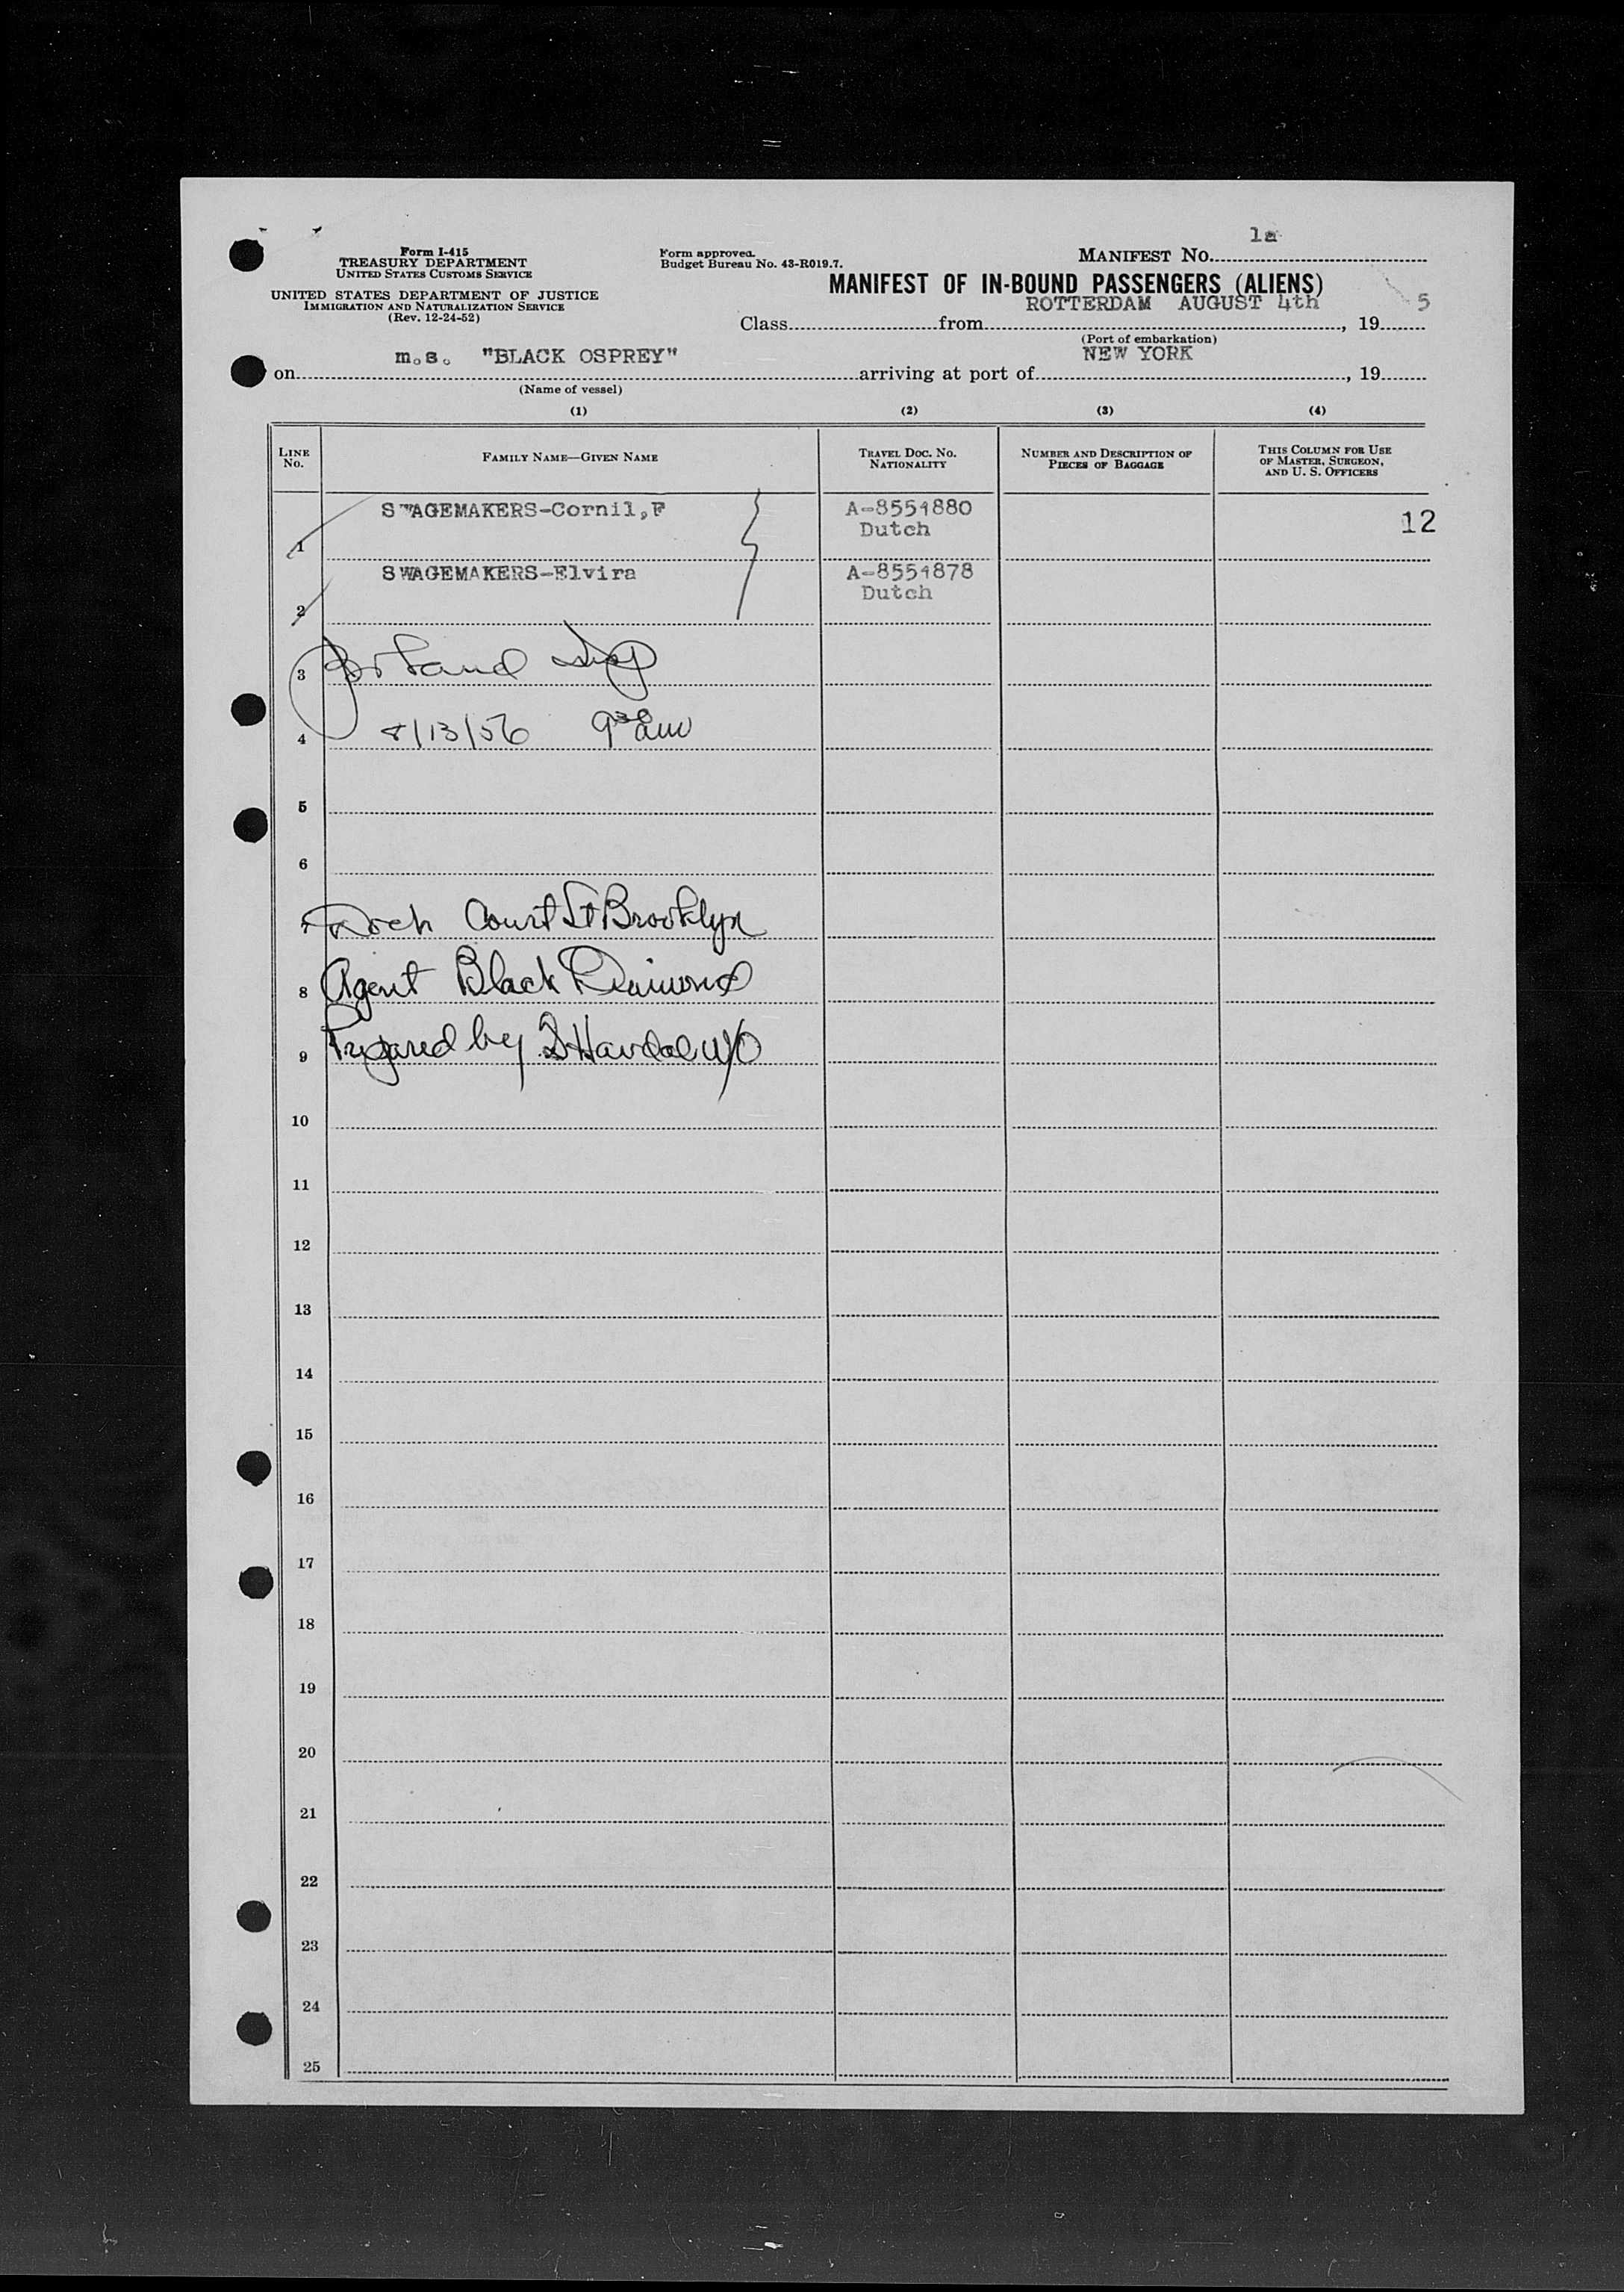 1a
Form I-415
TREASURY DEPARTMENT
UNITED STATES CUSTOMS SERVICE
UNITED STATES DEPARTMENT OF JUSTICE
IMMIGRATION AND NATURALIZATION SERVICE
(Rev. 12-24-52)
Form approved.
Budget Bureau No. 43-R019.7.
MANIFEST NO.
MANIFEST OF IN-BOUND PASSENGERS (ALIENS)
ROTTERDAM AUGUST 4th 5
Class from , 19
(Port of embarkation)
m.s. "BLACK OSPREY" NEW YORK
on arriving at port of , 19
(Name of vessel)
(1) (2) (3) (4)
LINE NO.
FAMILY NAME—GIVEN NAME
TRAVEL DOC. NO. NATIONALITY
NUMBER AND DESCRIPTION OF PIECES OF BAGGAGE
THIS COLUMN FOR USE OF MASTER, SURGEON, AND U. S. OFFICERS
1 SWAGEMAKERS-Cornil,F A-8551880 12
Dutch
2 SWAGEMAKERS-Elvira A-8551878
Dutch
3
4 8/13/56 9 30 am
5
6
Court St Brooklyn
8 Agent Black Diamond
9 Prepared by
10
11
12
13
14
15
16
17
18
19
20
21
22
23
24
25